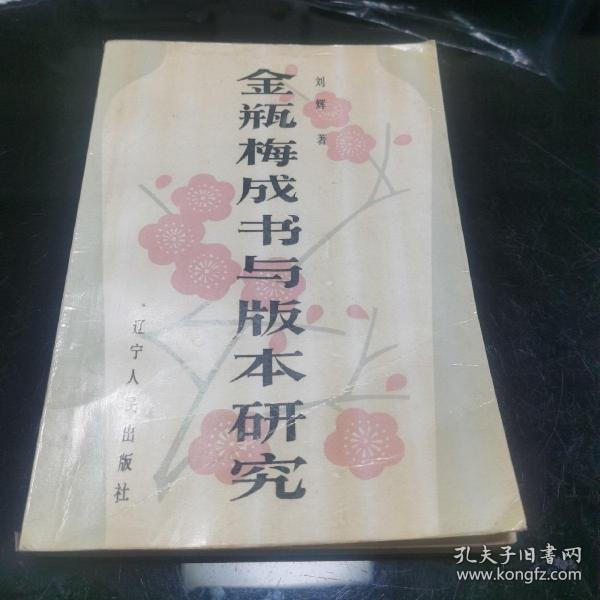 刘辉著
金瓶梅成书与版本研究
辽宁人民出版社
孔夫子旧書网
www.kongfz.com